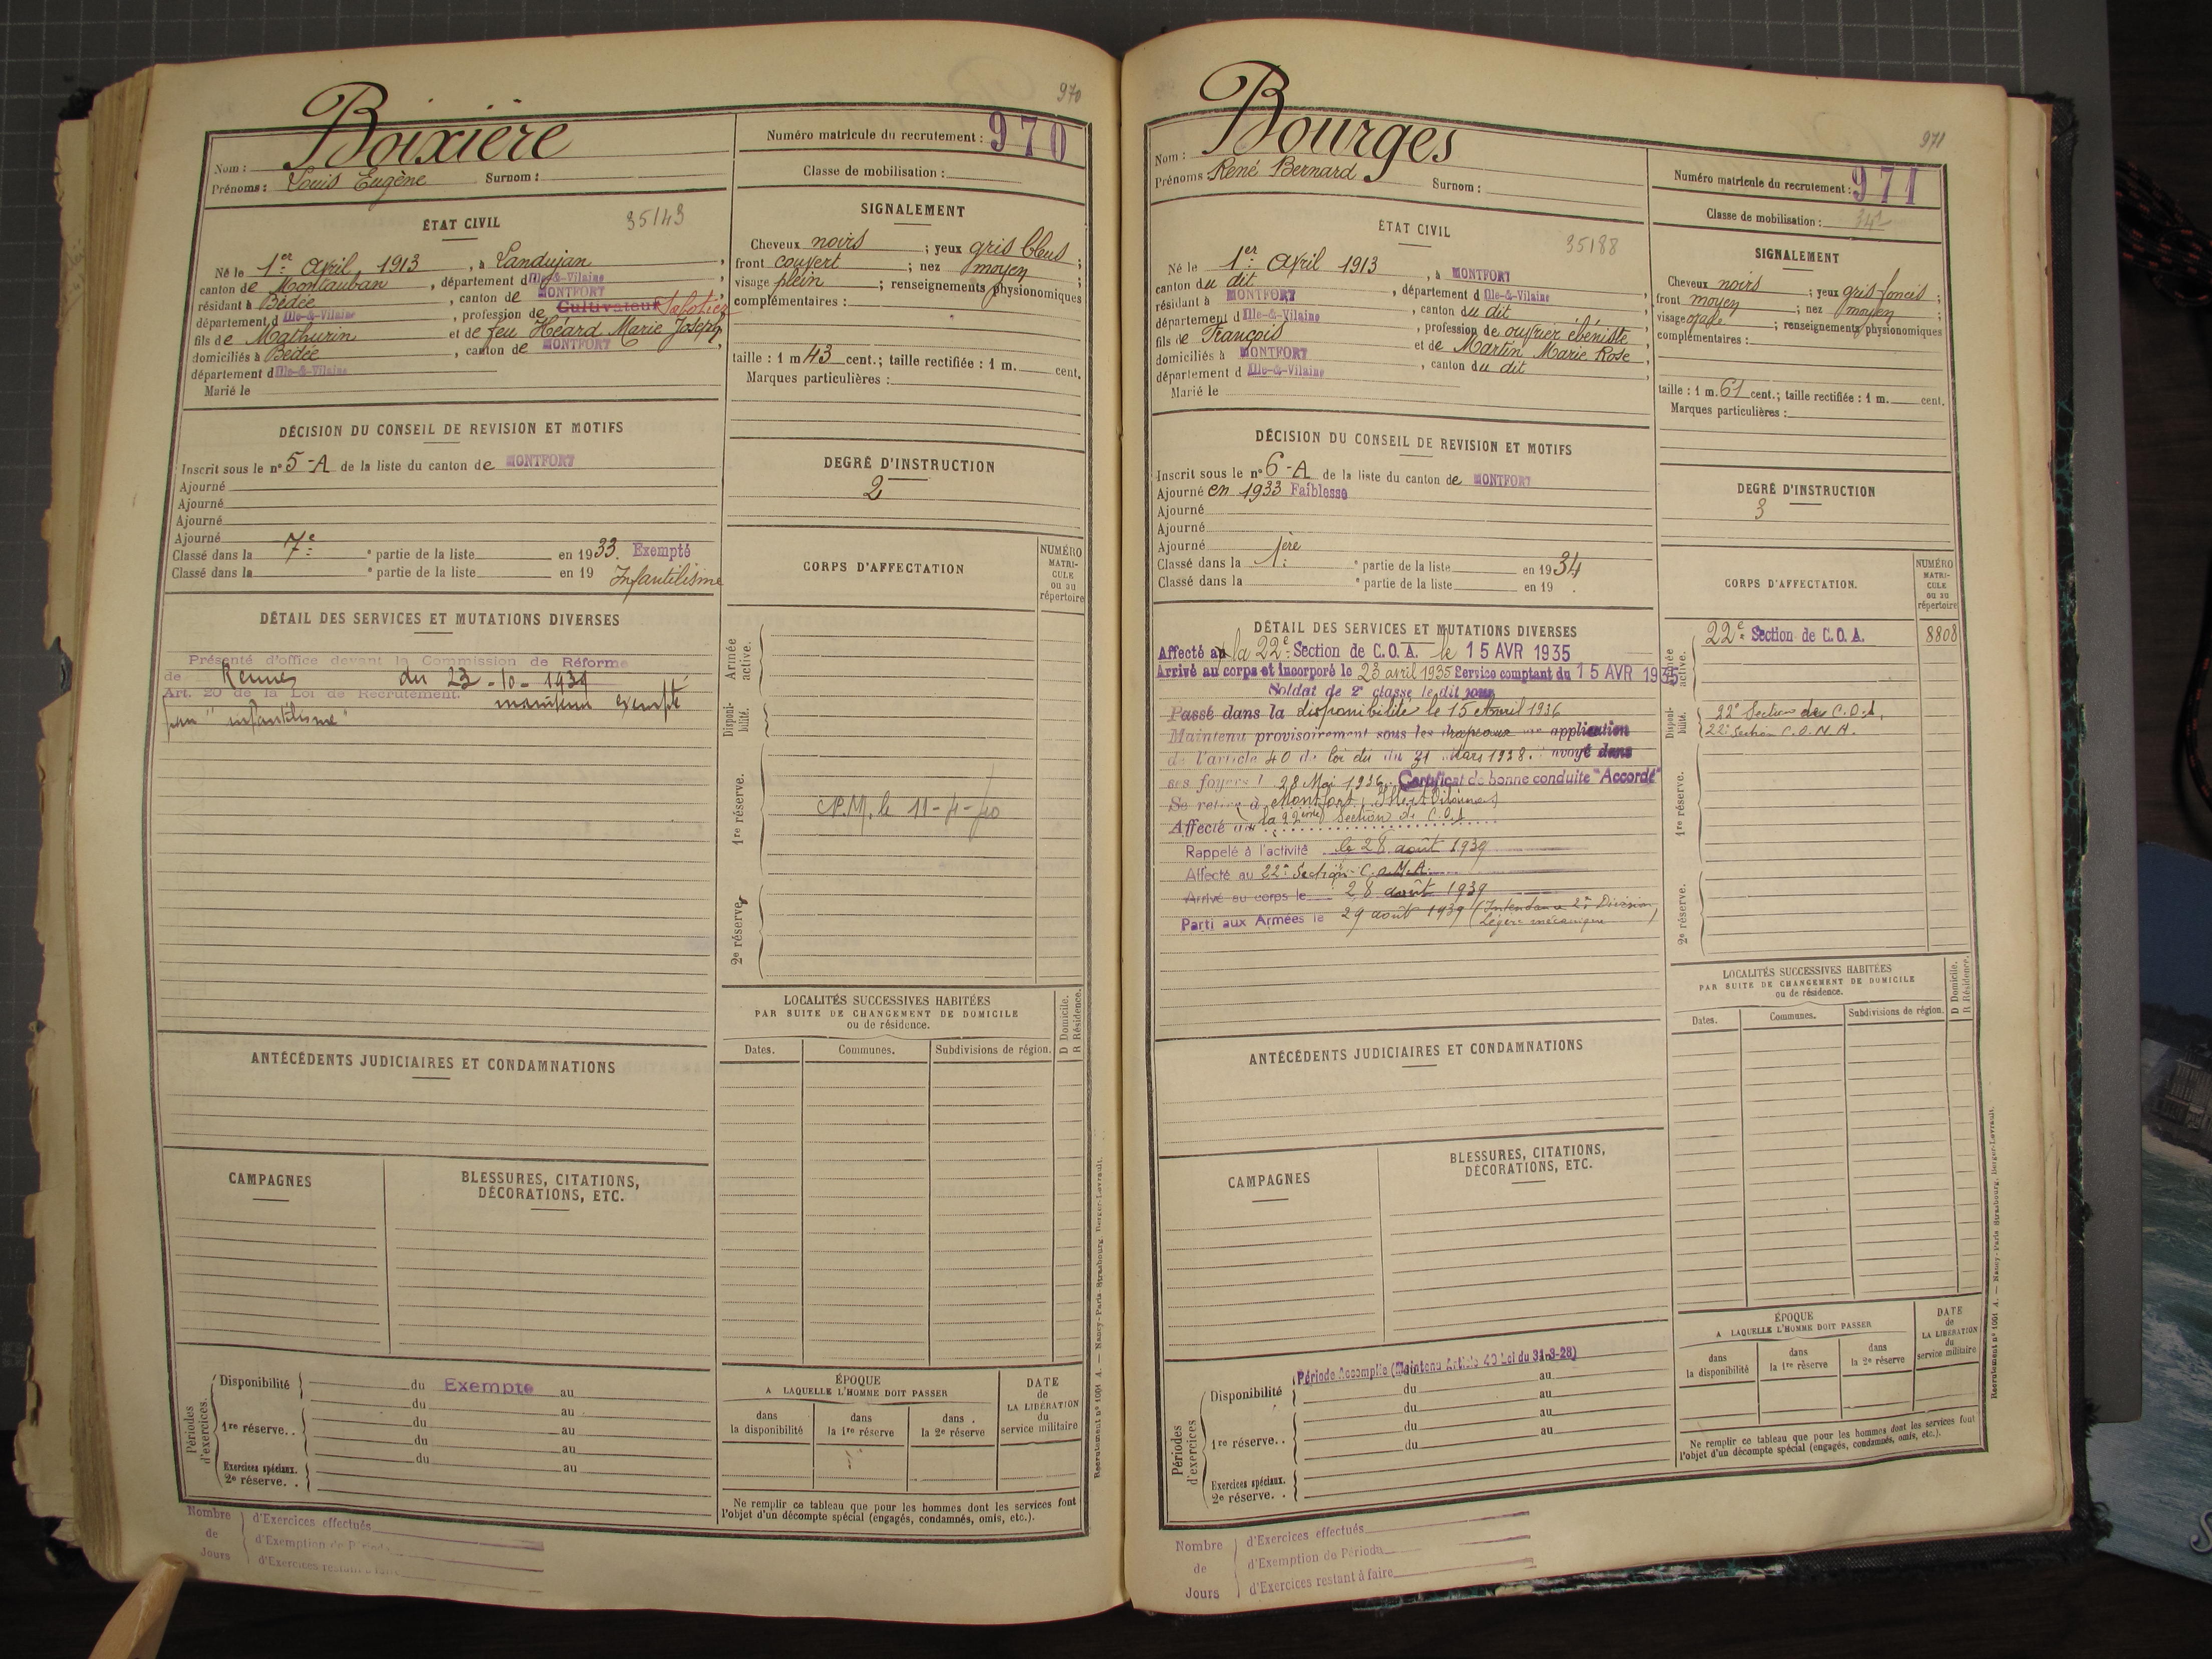 970
Boixière
Nom :
Prénoms : Louis Eugène Surnom :
Numéro matricule du recrutement : 970
Classe de mobilisation :
ÉTAT CIVIL 35143
Né le 1er Avril 1913, à Landujan,
canton de Montauban, département d Ille-&-Vilaine,
résidant à Bédée, canton de MONTFORT,
département d Ille-&-Vilaine, profession de Cultivateur Sabotier
fils de Mathurin et de feu Héard Marie Joseph,
domiciliés à Bédée, canton de MONTFORT,
département d Ille-&-Vilaine
Marié le
SIGNALEMENT
Cheveux noirs ; yeux gris bleus ;
front couvert ; nez moyen ;
visage plein ; renseignements physionomiques
complémentaires :
taille : 1 m 43 cent.; taille rectifiée : 1 m. cent.
Marques particulières :
DÉCISION DU CONSEIL DE REVISION ET MOTIFS
Inscrit sous le n° 5-A de la liste du canton de MONTFORT
Ajourné
Ajourné
Ajourné
Ajourné
Classé dans la 7e e partie de la liste en 1933. Exempté
Classé dans la e partie de la liste en 19 Infantilisme
DEGRÉ D'INSTRUCTION
2
CORPS D'AFFECTATION
NUMÉRO
MATRI-
CULE
ou au
répertoire
DÉTAIL DES SERVICES ET MUTATIONS DIVERSES
Présenté d'office devant la Commission de Réforme
de Rennes du 23-10-1939
Art. 20 de la Loi de Recrutement. maintenu exempté
pour "infantilisme"
Armée
active.
Disponi-
bilité.
1re réserve.
le 11-4-40
2e réserve.
LOCALITÉS SUCCESSIVES HABITÉES
PAR SUITE DE CHANGEMENT DE DOMICILE
ou de résidence.
Dates. Communes. Subdivisions de région.
D Domicile.
R Résidence.
ANTÉCÉDENTS JUDICIAIRES ET CONDAMNATIONS
CAMPAGNES
BLESSURES, CITATIONS,
DÉCORATIONS, ETC.
Périodes
d'exercices.
Disponibilité du Exempté au
du au
1re réserve.. du au
du au
du au
Exercices spéciaux.
2e réserve. .
ÉPOQUE
A LAQUELLE L'HOMME DOIT PASSER
dans
la disponibilité
dans
la 1re réserve
dans
la 2e réserve
DATE
de
LA LIBÉRATION
du
service militaire
Ne remplir ce tableau que pour les hommes dont les services font
l'objet d'un décompte spécial (engagés, condamnés, omis, etc.).
Nombre
de
Jours
d'Exercices effectués
d'Exemption de Période
d'Exercices restant à faire
Recrutement n° 1001 A. — Nancy-Paris-Strasbourg, Berger-Levrault.
971
Bourges
Nom :
Prénoms René Bernard Surnom :
Numéro matricule du recrutement : 971
Classe de mobilisation :
ÉTAT CIVIL 35188
Né le 1er Avril 1913, à MONTFORT
canton du dit, département d Ille-&-Vilaine
résidant à MONTFORT, canton du dit,
département d Ille-&-Vilaine, profession de ouvrier ébéniste,
fils de François et de Martin Marie Rose,
domiciliés à MONTFORT, canton du dit,
département d Ille-&-Vilaine
Marié le
SIGNALEMENT
Cheveux noirs ; yeux gris foncés ;
front moyen ; nez moyen ;
visage ovale ; renseignements physionomiques
complémentaires :
taille : 1 m. 61 cent.; taille rectifiée : 1 m. cent.
Marques particulières :
DÉCISION DU CONSEIL DE REVISION ET MOTIFS
Inscrit sous le n° 6-A de la liste du canton de MONTFORT
Ajourné en 1933 Faiblesse
Ajourné
Ajourné
Ajourné
Classé dans la 1ère e partie de la liste en 1934
Classé dans la e partie de la liste en 19 .
DEGRÉ D'INSTRUCTION
3
CORPS D'AFFECTATION.
NUMÉRO
MATRI-
CULE
ou au
répertoire
DÉTAIL DES SERVICES ET MUTATIONS DIVERSES
Affecté au la 22e Section de C.O.A. le 15 AVR 1935
Arrivé au corps et incorporé le 23 avril 1935 Service comptant du 15 AVR 1935
Soldat de 2e classe le dit jour
Passé dans la disponibilité le 15 Avril 1936
Maintenu provisoirement sous les drapeaux application
de l'article 40 de loi du du 31 Mars 1928. dans
ses foyers l 28 Mai 1936. Certificat de bonne conduite "Accordé"
Se retire à Montfort
Affecté la 22ème Section de C.O.A.
Rappelé à l'activité le 28 août 1939
Affecté au 22e Section C.O.M.A.
Arrivé au corps le 28 août 1939
Parti aux Armées le 29 août 1939 (Intendance 2e Division
Légère mécanique)
Armée
active.
22e Section de C.O.A. 8808
Disponi-
bilité.
22e Section de C.O.A.
22e Section C.O.M.A.
1re réserve.
2e réserve.
LOCALITÉS SUCCESSIVES HABITÉES
PAR SUITE DE CHANGEMENT DE DOMICILE
ou de résidence.
Dates. Communes. Subdivisions de région.
D Domicile.
R Résidence.
ANTÉCÉDENTS JUDICIAIRES ET CONDAMNATIONS
CAMPAGNES
BLESSURES, CITATIONS,
DÉCORATIONS, ETC.
Périodes
d'exercices
Période Accomplie (Maintenu Article 40 Loi du 31-3-28)
Disponibilité du au
du au
1re réserve. . du au
du au
Exercices spéciaux.
2e réserve. .
ÉPOQUE
A LAQUELLE L'HOMME DOIT PASSER
dans
la disponibilité
dans
la 1re réserve
dans
la 2e réserve
DATE
de
LA LIBÉRATION
du
service militaire
Ne remplir ce tableau que pour les hommes dont les services font
l'objet d'un décompte spécial (engagés, condamnés, omis, etc.).
Nombre
de
Jours
d'Exercices effectués
d'Exemption de Période
d'Exercices restant à faire
Recrutement n° 1001 A. — Nancy-Paris-Strasbourg, Berger-Levrault.